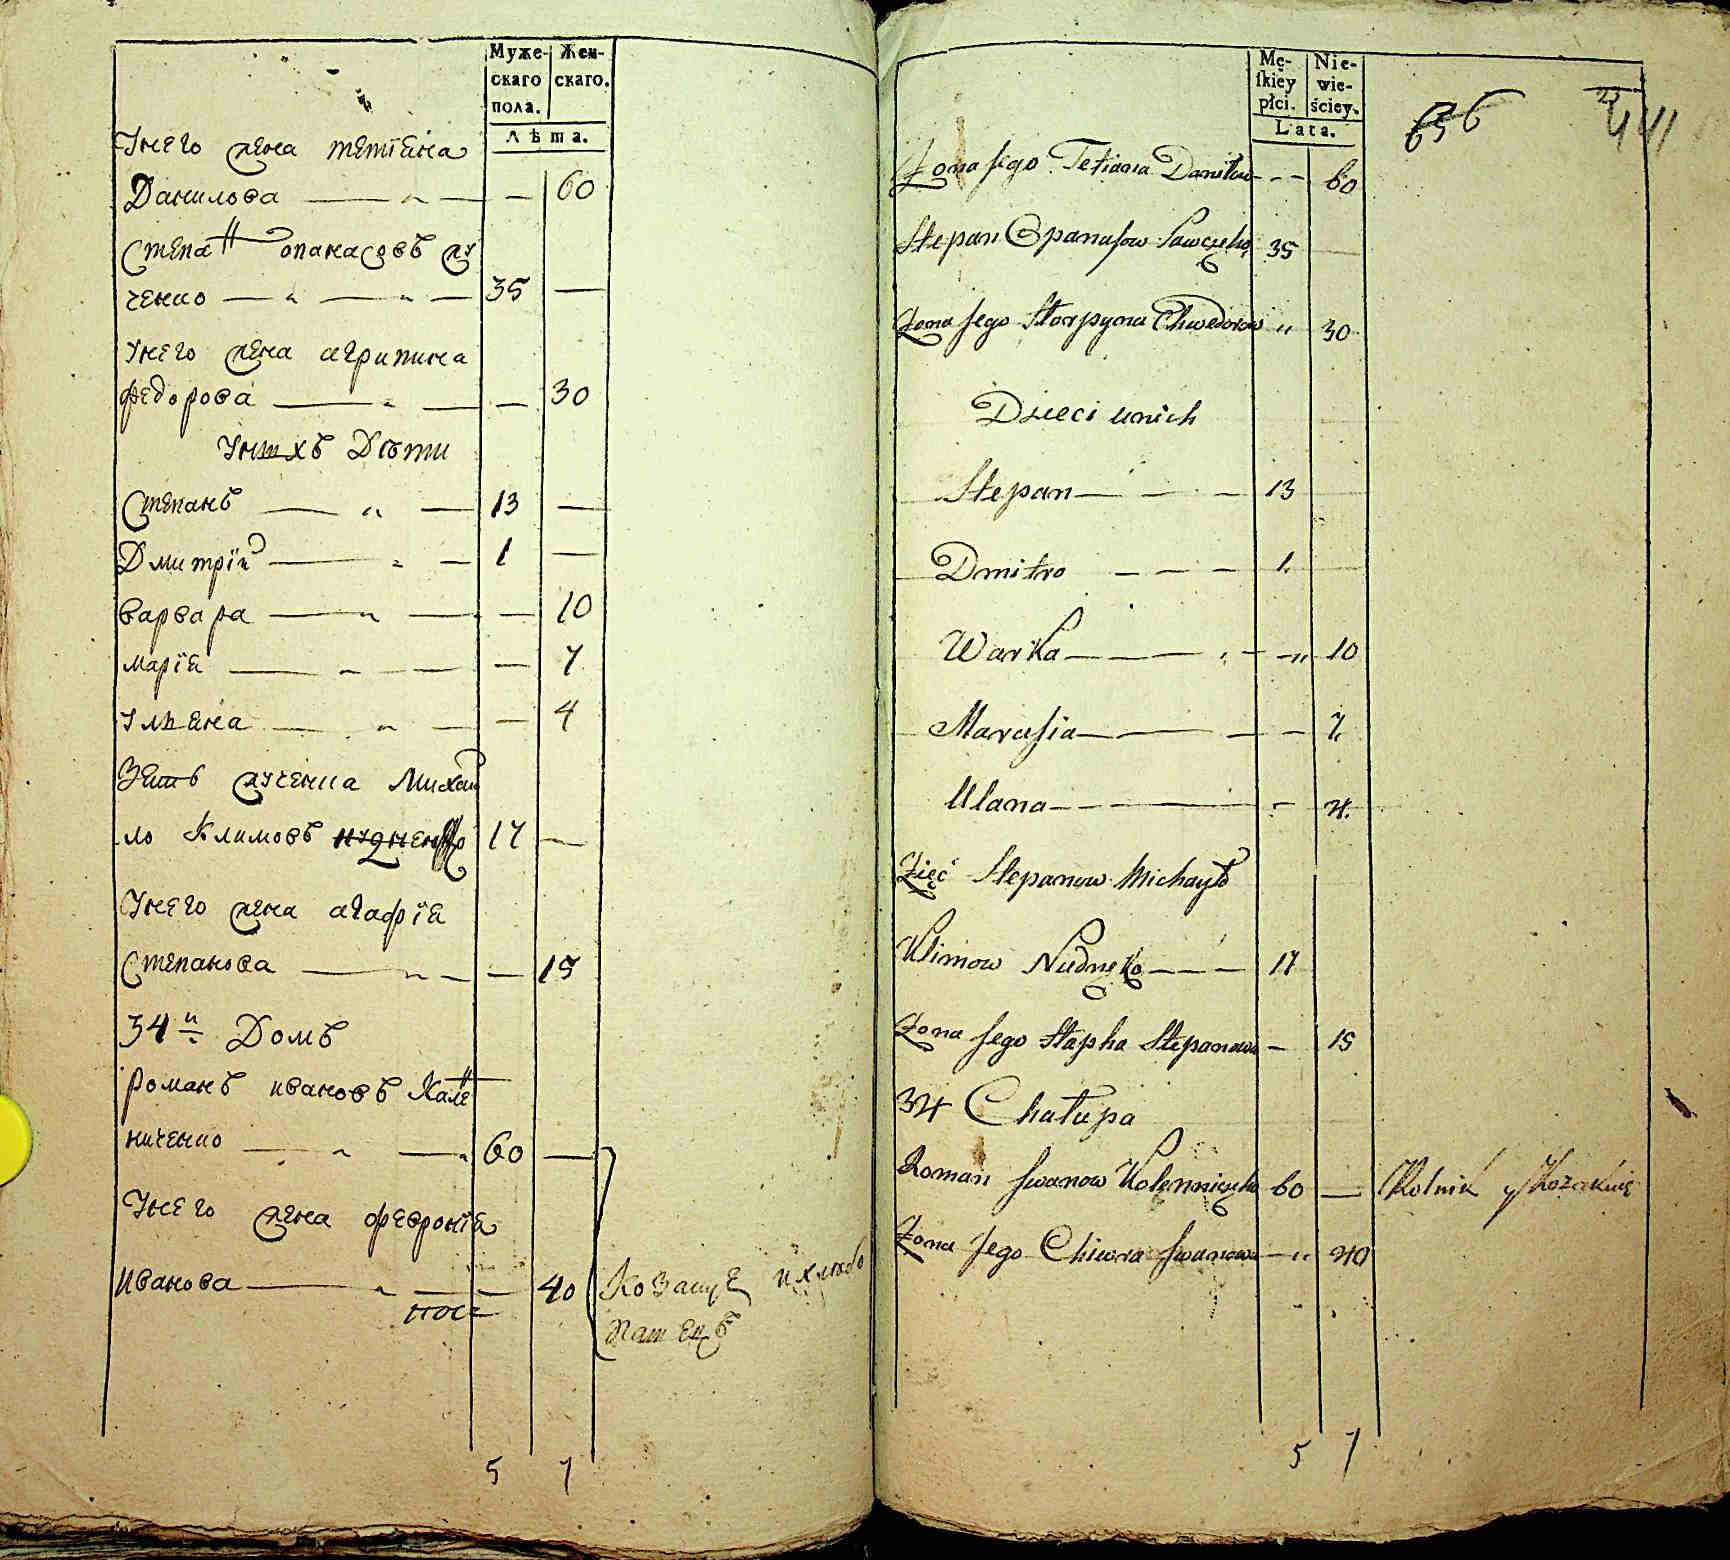 Муже-
скаго
пола.
Жен-
скаго.
Лѣта.
Унего жена тетіѧна
Данилова — „ — — 60
Степанъ опанасовъ
ченко — „ — „ — 35 —
Унего жена агрипина
Федорова — „ — — 30
Унихъ Дѣти
Степанъ — „ — 13 —
Дмитрій — „ — 1 —
варвара — „ — — 10
маріѧ — „ — — 7
Улѣѧна — „ — — 4
Зѧть Михай
ло Климовъ нудненко 17 —
Унего жена агафіѧ
Степанова — „ — — 15
34й Домъ
Романъ ивановъ Кале
ниченко — „ — „ 60 —
Унего жена февроніѧ
Иванова — „ — — 40
Козаще ихлѣбо
пашецъ
5 7
Mę-
skiey
płci.
Nie-
wie-
ściey.
Lata.
656
23
441
Zona Jego Tetiana Daniłow - - - 60
Stepan Opanasow Sawczęko 35 —
Zona Jego Horpyna Chwedorow „ 30
Dzieci unich
Stepan — — — 13
Dmitro — — — 1.
Warka — — „ — „ 10
Marusia — — — — 7.
Ulana — — — — 4.
Zięć Stepanow Michayło
Klimow Nudnęko — — — 17
Zona Jego Hapha Stepanowa — 15
34 Chałupa
Roman Jwanow Kolenniczęko 60 — Rolnik y Kozakuie
Zona Jego Chiwra Jwanowa — „ 40
5 7